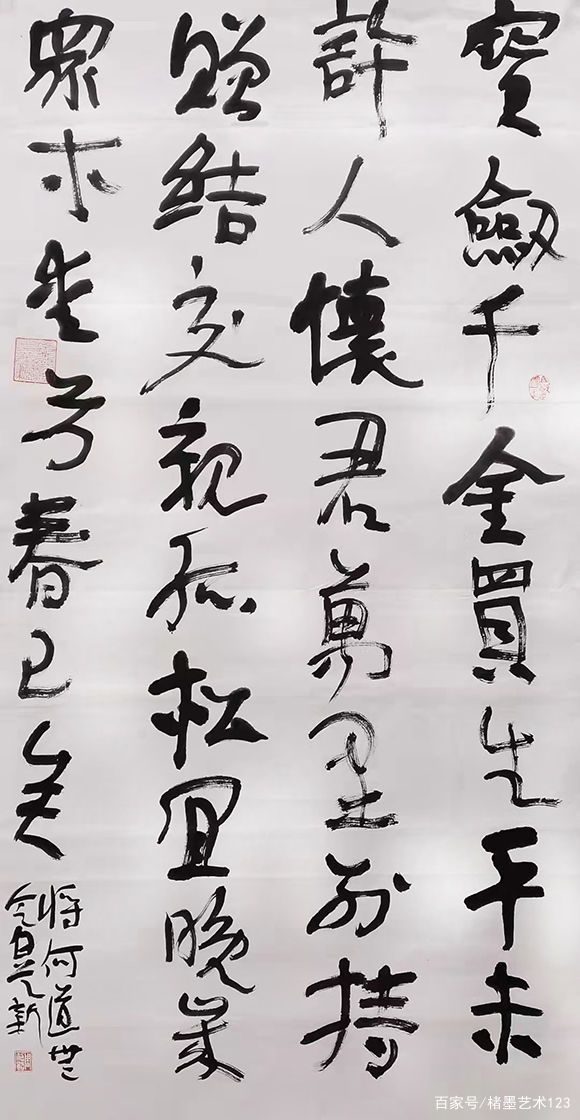 寶劍千金買生平未
許人懷君萬里別持
贈結交親孤松宜晚歲
衆木愛芳春已矣
將何道無
令白髮新
百家号/楮墨艺术123